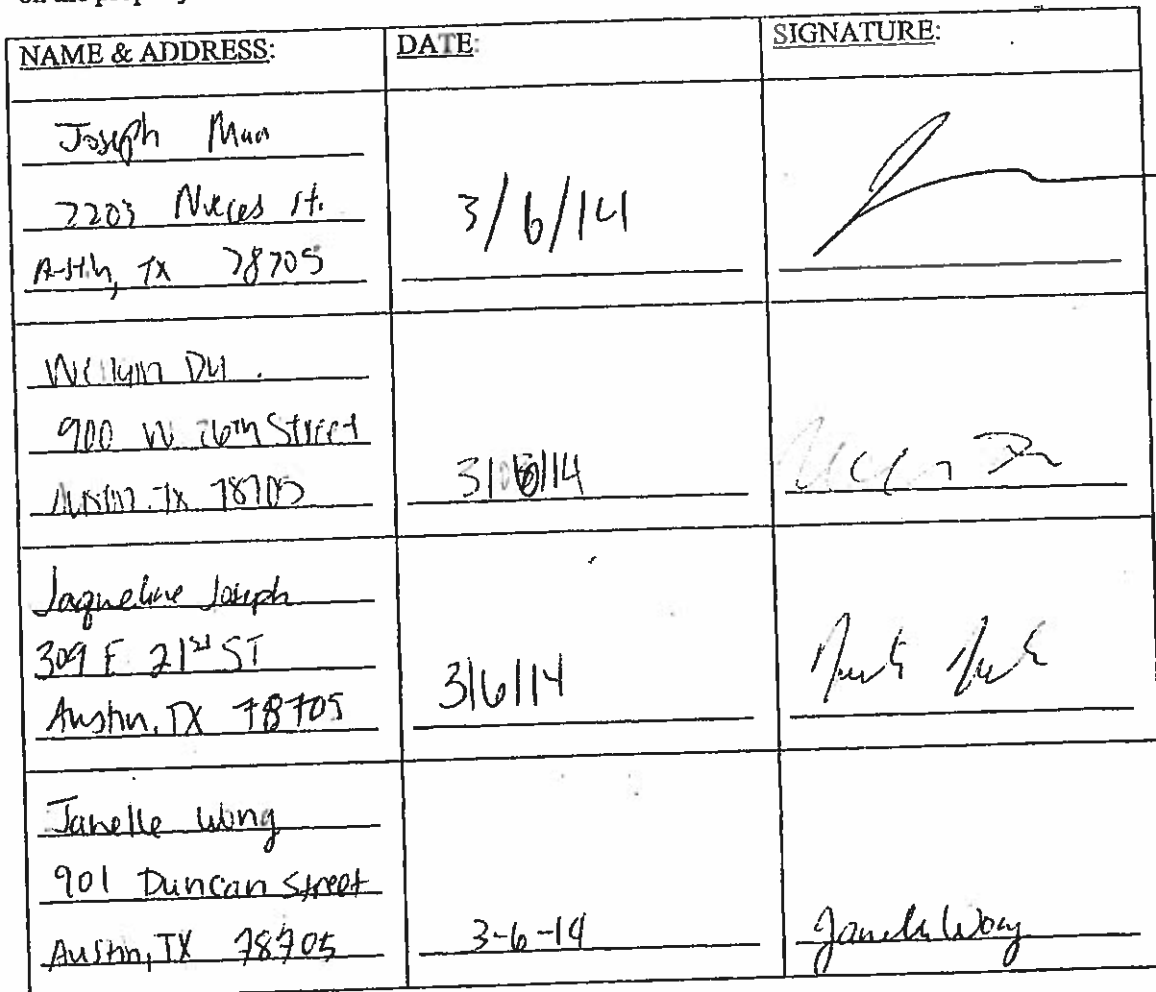 on the property
NAME & ADDRESS: DATE: SIGNATURE:
Joseph
2203 Nueces St.
Austin, TX 78705
3/6/14
900 W 26th Street
Austin, TX 78705
3/6/14
Jaqueline Joseph
309 E 21st ST
Austin, TX 78705
3/6/14
Janelle Wong
901 Duncan Street
Austin, TX 78705
3-6-14
Janelle Wong